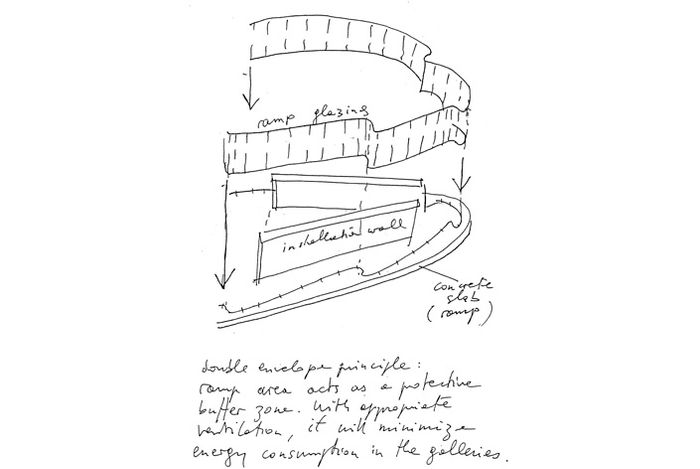 ramp glazing
installation wall
concrete
slab
(ramp)
double envelope principle:
ramp area acts as a protective
buffer zone. With appropriate
ventilation, it will minimize
energy consumption in the galleries.